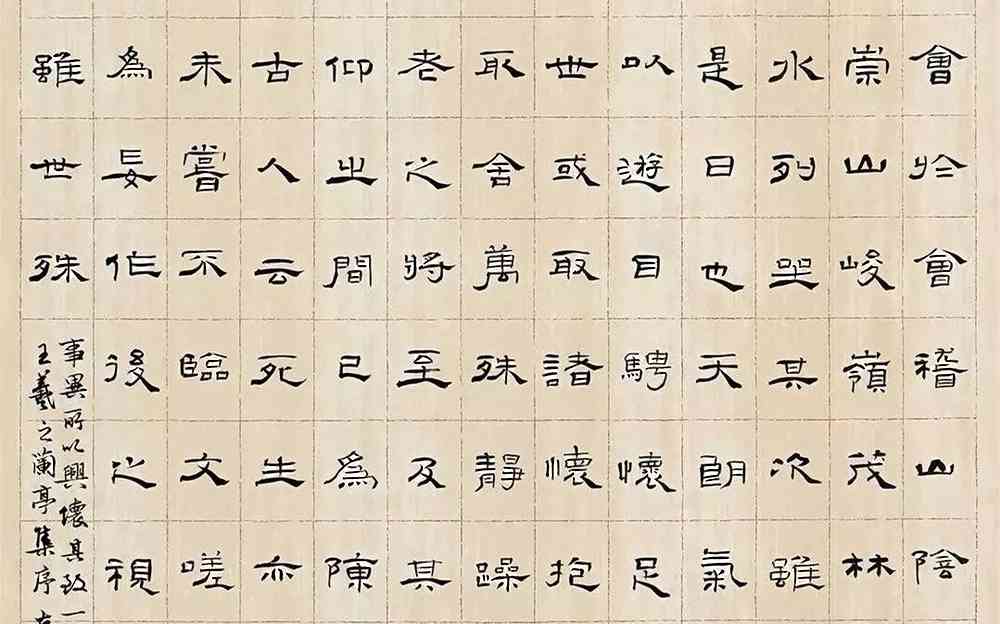 會於會稽山陰
崇山峻嶺茂林
水列坐其次雖
是日也天朗氣
以遊目騁懷足
世或取諸懷抱
取舍萬殊靜躁
老之將至及其
仰之間已為陳
古人云死生亦
未嘗不臨文嗟
為妄作後之視
雖世殊
事異所以興懷其致一
王羲之蘭亭集序